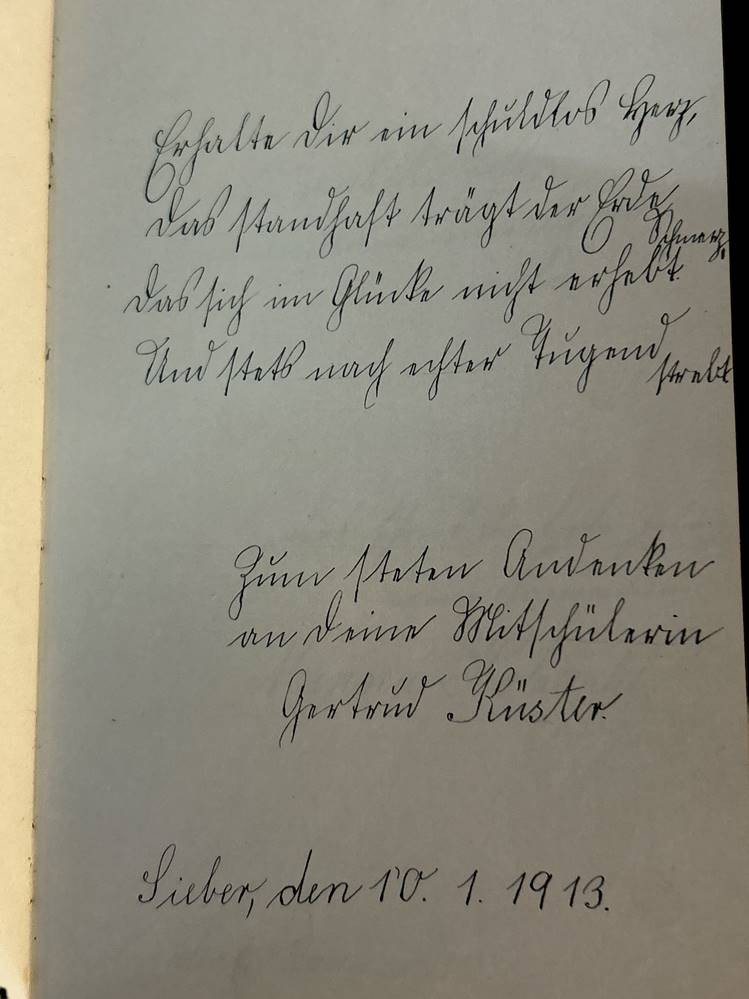 Erhalte Dir ein schuldlos Herz,
Das standhaft trägt der Erde
Schmerz.
Das sich im Glücke nicht erhebt.
Und stets nach echter Tugend
strebt
Zum steten Andenken
an Deine Mitschülerin
Gertrud Küster.
Sieber, den 10. 1. 1913.